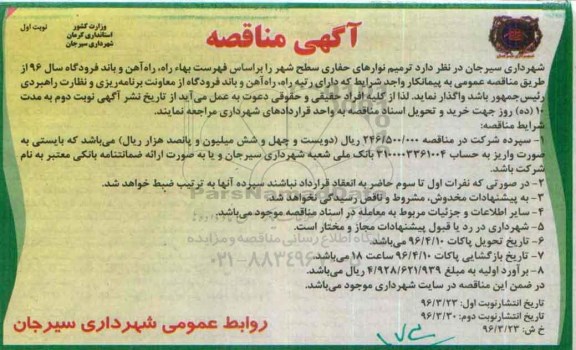 آگهی مناقصه
وزارت کشور
استانداری کرمان
شهرداری سیرجان
نوبت اول
شهرداری سیرجان در نظر دارد ترمیم نوارهای حفاری سطح شهر را براساس فهرست بهاء راه، راه‌آهن و باند فرودگاه سال ۹۶ از
طریق مناقصه عمومی به پیمانکار واجد شرایط که دارای رتبه راه، راه‌آهن و باند فرودگاه از معاونت برنامه‌ریزی و نظارت راهبردی
رئیس‌جمهور باشد واگذار نماید. لذا از کلیه افراد حقیقی و حقوقی دعوت به عمل می‌آید از تاریخ نشر آگهی نوبت دوم به مدت
۱۰ (ده) روز جهت خرید و تحویل اسناد مناقصه به واحد قراردادهای شهرداری مراجعه نمایند.
شرایط مناقصه:
۱- سپرده شرکت در مناقصه ۲۴۶/۵۰۰/۰۰۰ ریال (دویست و چهل و شش میلیون و پانصد هزار ریال) می‌باشد که بایستی به
صورت واریز به حساب ۳۱۰۰۰۰۳۳۶۱۰۰۴ بانک ملی شعبه شهرداری سیرجان و یا به صورت ارائه ضمانتنامه بانکی معتبر به نام
شرکت باشد.
۲- در صورتی که نفرات اول تا سوم حاضر به انعقاد قرارداد نباشند سپرده آنها به ترتیب ضبط خواهد شد.
۳- به پیشنهادات مخدوش، مشروط و ناقص رسیدگی نخواهد شد.
۴- سایر اطلاعات و جزئیات مربوط به معامله در اسناد مناقصه موجود می‌باشد.
۵- شهرداری در رد یا قبول پیشنهادات مجاز و مختار است.
۶- تاریخ تحویل پاکات ۹۶/۴/۱۰ می‌باشد.
۷- تاریخ بازگشایی پاکات ۹۶/۴/۱۰ ساعت ۱۸ می‌باشد.
۸- برآورد اولیه به مبلغ ۴/۹۲۸/۶۲۱/۹۳۹ ریال می‌باشد.
در ضمن این مناقصه در سایت شهرداری موجود می‌باشد.
تاریخ انتشارنوبت اول: ۹۶/۳/۲۳
تاریخ انتشارنوبت دوم: ۹۶/۳/۳۰
خ ش: ۹۶/۳/۲۳
روابط عمومی شهرداری سیرجان
ParsNamadData
پایگاه اطلاع رسانی مناقصه و مزایده
۰۲۱-۸۸۳۴۹۶۷۰